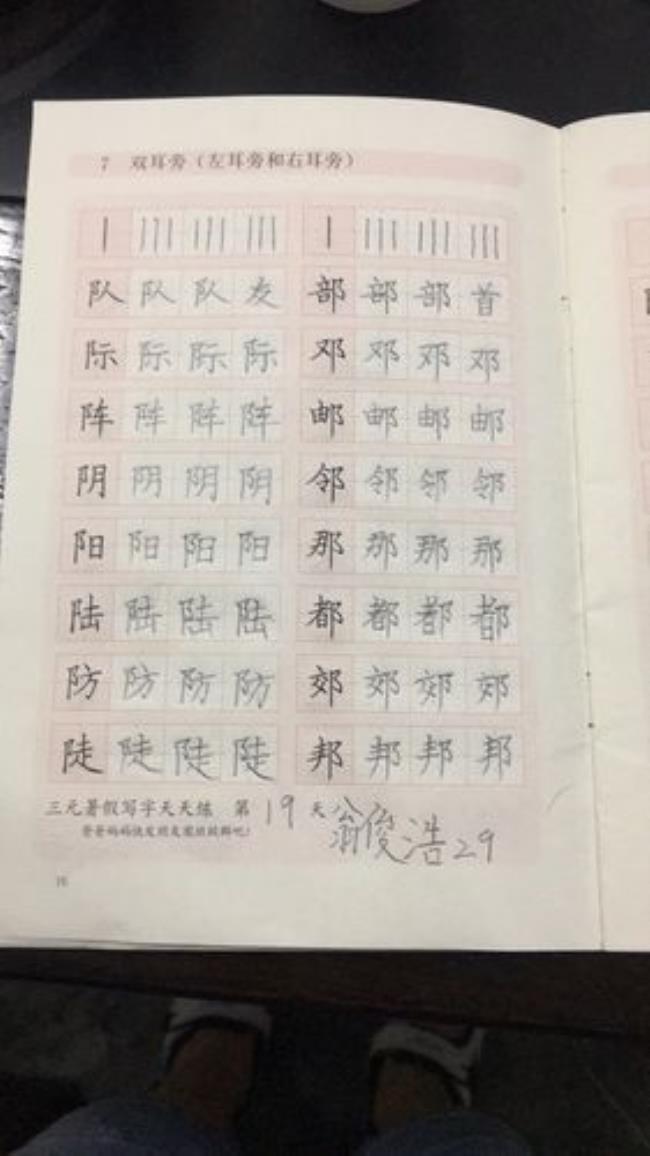 7 双耳旁（左耳旁和右耳旁）
队 队 队 友 部 部 部 首
际 际 际 际 邓 邓 邓 邓
阵 阵 阵 阵 邮 邮 邮 邮
阴 阴 阴 阴 邻 邻 邻 邻
阳 阳 阳 阳 那 那 那 那
陆 陆 陆 陆 都 都 都 都
防 防 防 防 郊 郊 郊 郊
陡 陡 陡 陡 邦 邦 邦 邦
三元暑假写字天天练 第 19 天 翁俊浩29
爸爸妈妈快发朋友圈
16